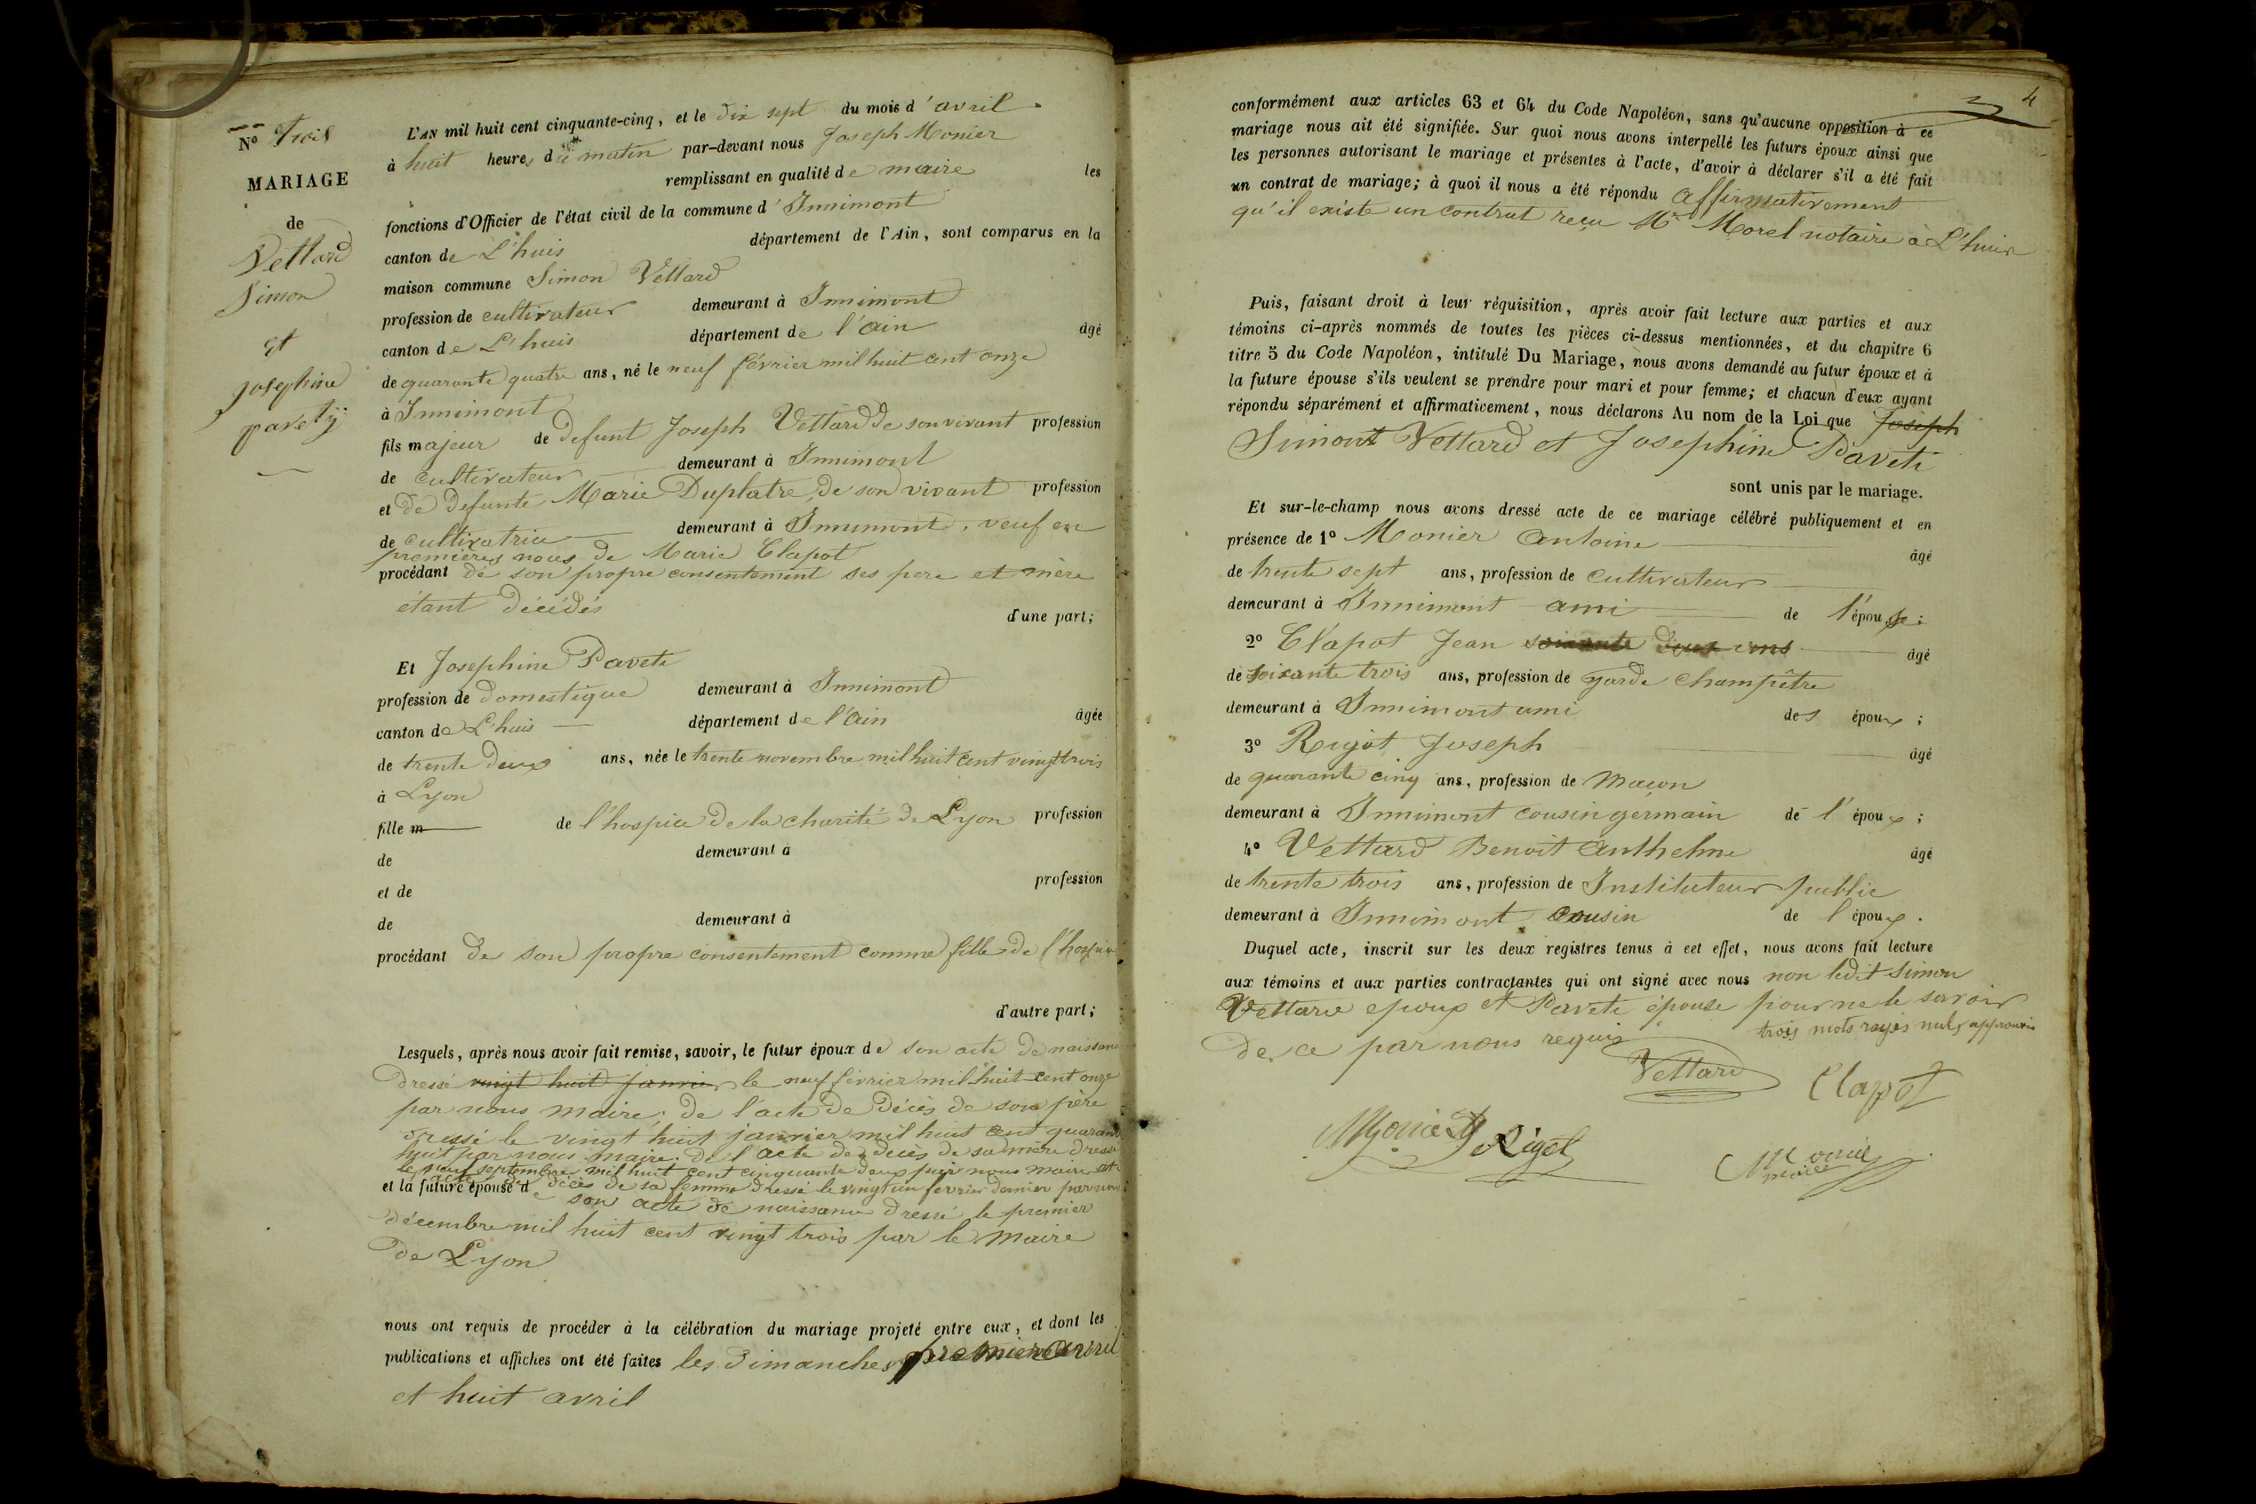 N° Trois
MARIAGE
de
Vettard
Simon
et
josephine
pavety
L'AN mil huit cent cinquante-cinq, et le dix sept du mois d'avril
à huit heures du matin par-devant nous Joseph Monier
remplissant en qualité de maire les
fonctions d'Officier de l'état civil de la commune d'Innimont
canton de L'huis département de l'Ain, sont comparus en la
maison commune Simon Vettard
profession de cultivateur demeurant à Innimont
canton de L'huis département de l'ain âgé
de quarante quatre ans, né le neuf février mil huit cent onze
à Innimont
fils majeur de defunt Joseph Vettard de son vivant profession
de cultivateur demeurant à Innimont
et de defunte Marie Duplatre de son vivant profession
de cultivatrice demeurant à Innimont, veuf en
premières noces de Marie Clapot
procédant de son propre consentement ses pere et mère
étant décédés
d'une part;
Et Josephine Paveti
profession de domestique demeurant à Innimont
canton de L'huis département de l'ain âgée
de trente deux ans, née le trente novembre mil huit cent vingt trois
à Lyon
fille m de l'hospice de la charité de Lyon profession
de demeurant à
et de profession
de demeurant à
procédant de son propre consentement comme fille de l'hospice
d'autre part;
Lesquels, après nous avoir fait remise, savoir, le futur époux de son acte de naissance
dressé vingt huit janvier le neuf février mil huit cent onze
par nous maire, de l'acte de décès de son père
dressé le vingt huit janvier mil huit cent quarante
huit par nous maire, de l'acte de décès de sa mère dressé
le neuf septembre mil huit cent cinquante deux par nous maire et
décès de sa femme dressé le vingt un fevrier dernier par nous
et la future épouse de son acte de naissance dressé le premier
décembre mil huit cent vingt trois par le maire
de Lyon
nous ont requis de procéder à la célébration du mariage projeté entre eux, et dont les
publications et affiches ont été faites les dimanches premier avril
et huit avril
4
conformément aux articles 63 et 64 du Code Napoléon, sans qu'aucune opposition à ce
mariage nous ait été signifiée. Sur quoi nous avons interpellé les futurs époux ainsi que
les personnes autorisant le mariage et présentes à l'acte, d'avoir à déclarer s'il a été fait
un contrat de mariage; à quoi il nous a été répondu affirmativement
qu'il existe un contrat reçu Me Morel notaire à L'huis
Puis, faisant droit à leur réquisition, après avoir fait lecture aux parties et aux
témoins ci-après nommés de toutes les pièces ci-dessus mentionnées, et du chapitre 6
titre 5 du Code Napoléon, intitulé Du Mariage, nous avons demandé au futur époux et à
la future épouse s'ils veulent se prendre pour mari et pour femme; et chacun d'eux ayant
répondu séparément et affirmativement, nous déclarons Au nom de la Loi que Joseph
Simont Vettard et Josephine Paveti
sont unis par le mariage.
Et sur-le-champ nous avons dressé acte de ce mariage célébré publiquement et en
présence de 1° Monier Antoine âgé
de trente sept ans, profession de cultivateur
demeurant à Innimont ami de l'épouse;
2° Clapot Jean soixante deux ans âgé
de soixante trois ans, profession de garde champêtre
demeurant à Innimont ami des époux;
3° Rigot Joseph âgé
de quarante cinq ans, profession de maçon
demeurant à Innimont cousin germain de l'époux;
4° Vettard Benoit Anthelme âgé
de trente trois ans, profession de Instituteur public
demeurant à Innimont cousin de l'époux.
Duquel acte, inscrit sur les deux registres tenus à cet effet, nous avons fait lecture
aux témoins et aux parties contractantes qui ont signé avec nous non ledit Simon
Vettard epoux et Paveti épouse pour ne le savoir
de ce par nous requis trois mots rayés nuls approuvés
Vettard Clapot
Monier Rigot
Monier
maire